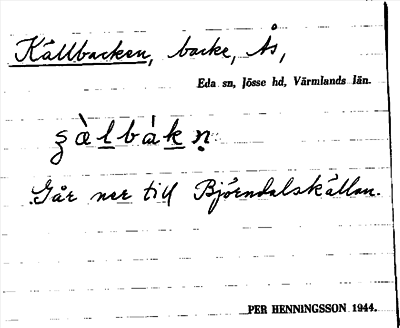 Källbacken, backe, Ås,
Eda sn, Jösse hd, Värmlands län.
ʂà̀lbákn̥
Går ner till Björndalskällan.
PER HENNINGSSON 1944.